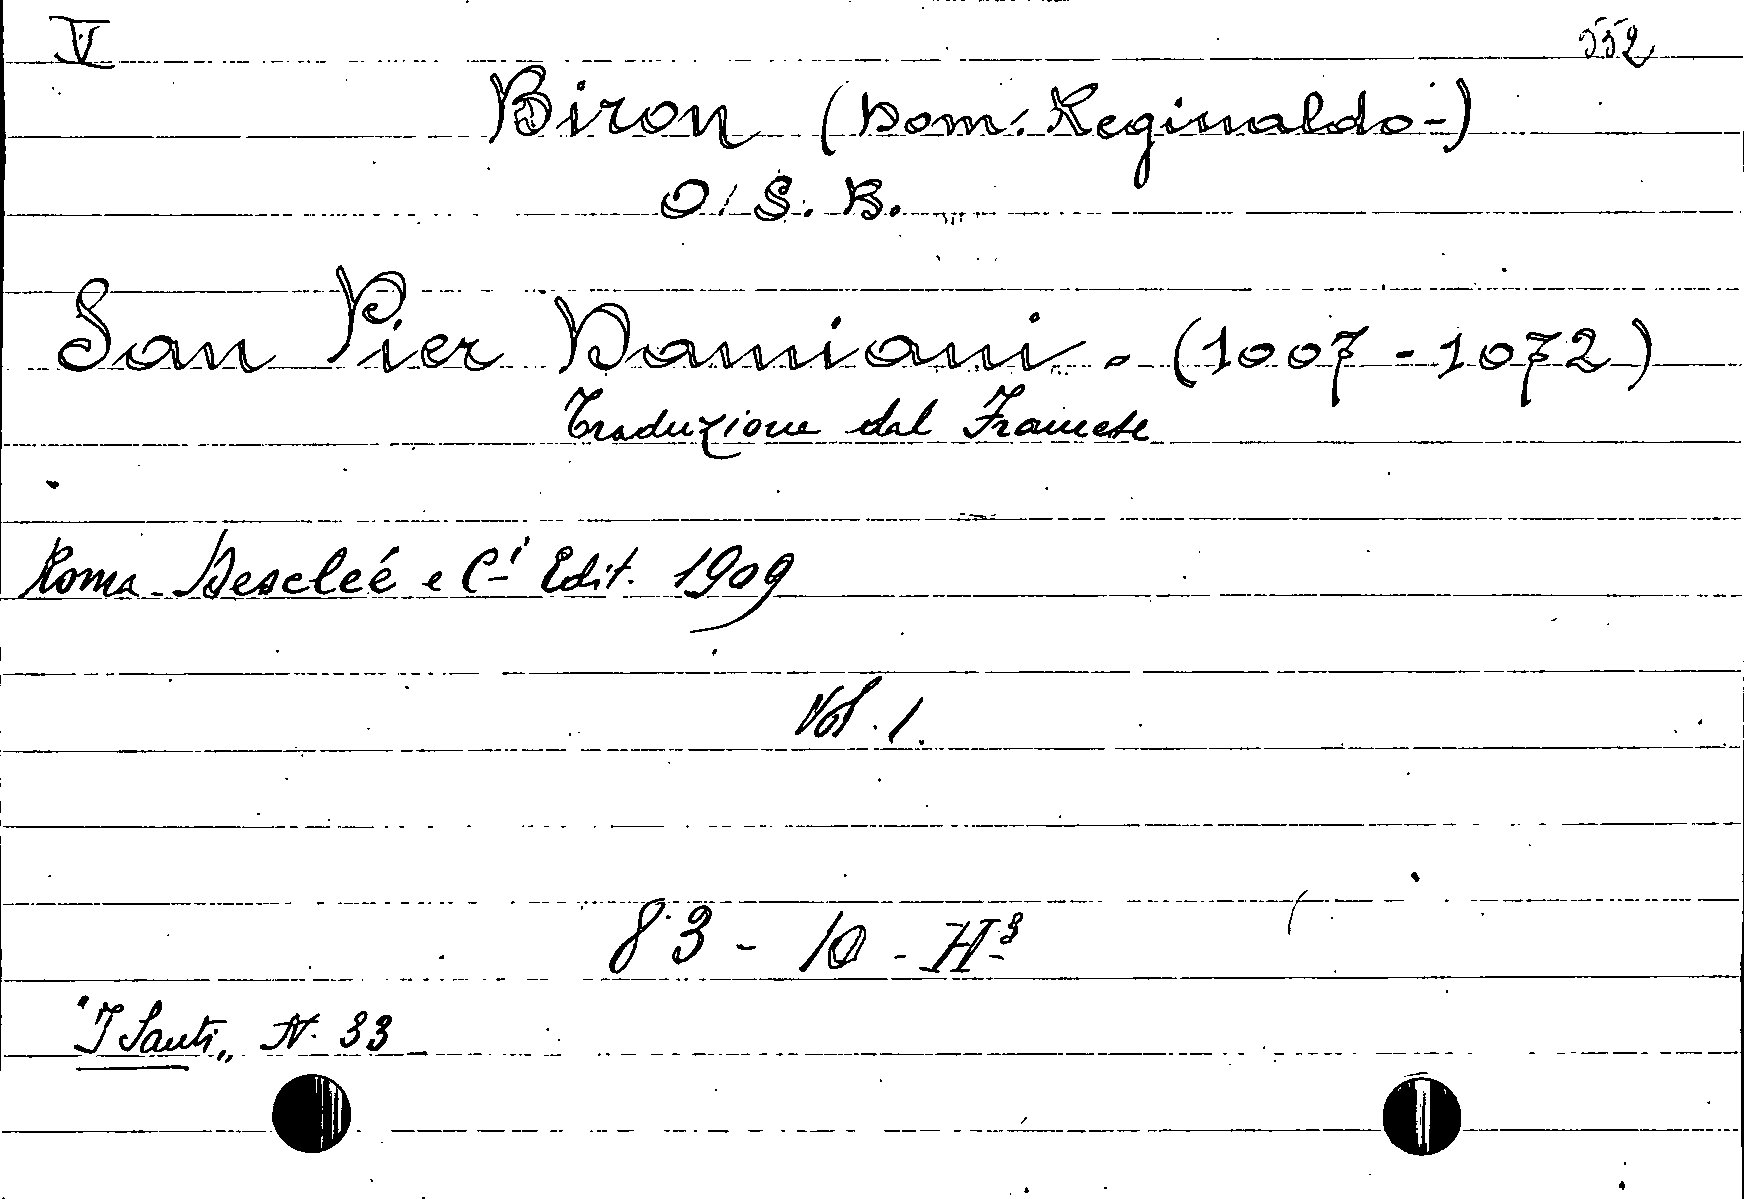 V 552
Biron (Dom. Reginaldo-)
O. S. B.
San Pier Damiani. (1007-1072)
Traduzione dal Francese
Roma. Descleé e C-i Edit. 1909
Vol. 1.
83 - 10 - H-3
"I Santi„ N. 33